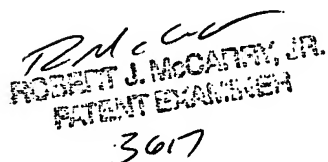 R McC
ROBERT J. McCARRY, JR.
PATENT EXAMINER
3617